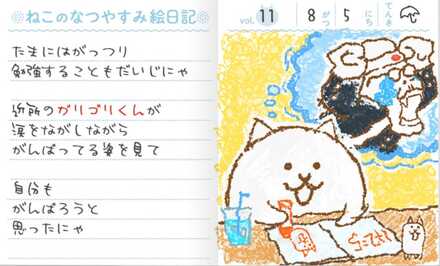 ねこのなつやすみ絵日記
vol. 11
8がつ5にち
てんき
たまにはがっつり
勉強することもだいじにゃ
近所のガリゴリくんが
涙をながしながら
がんばってる姿を見て
自分も
がんばろうと
思ったにゃ